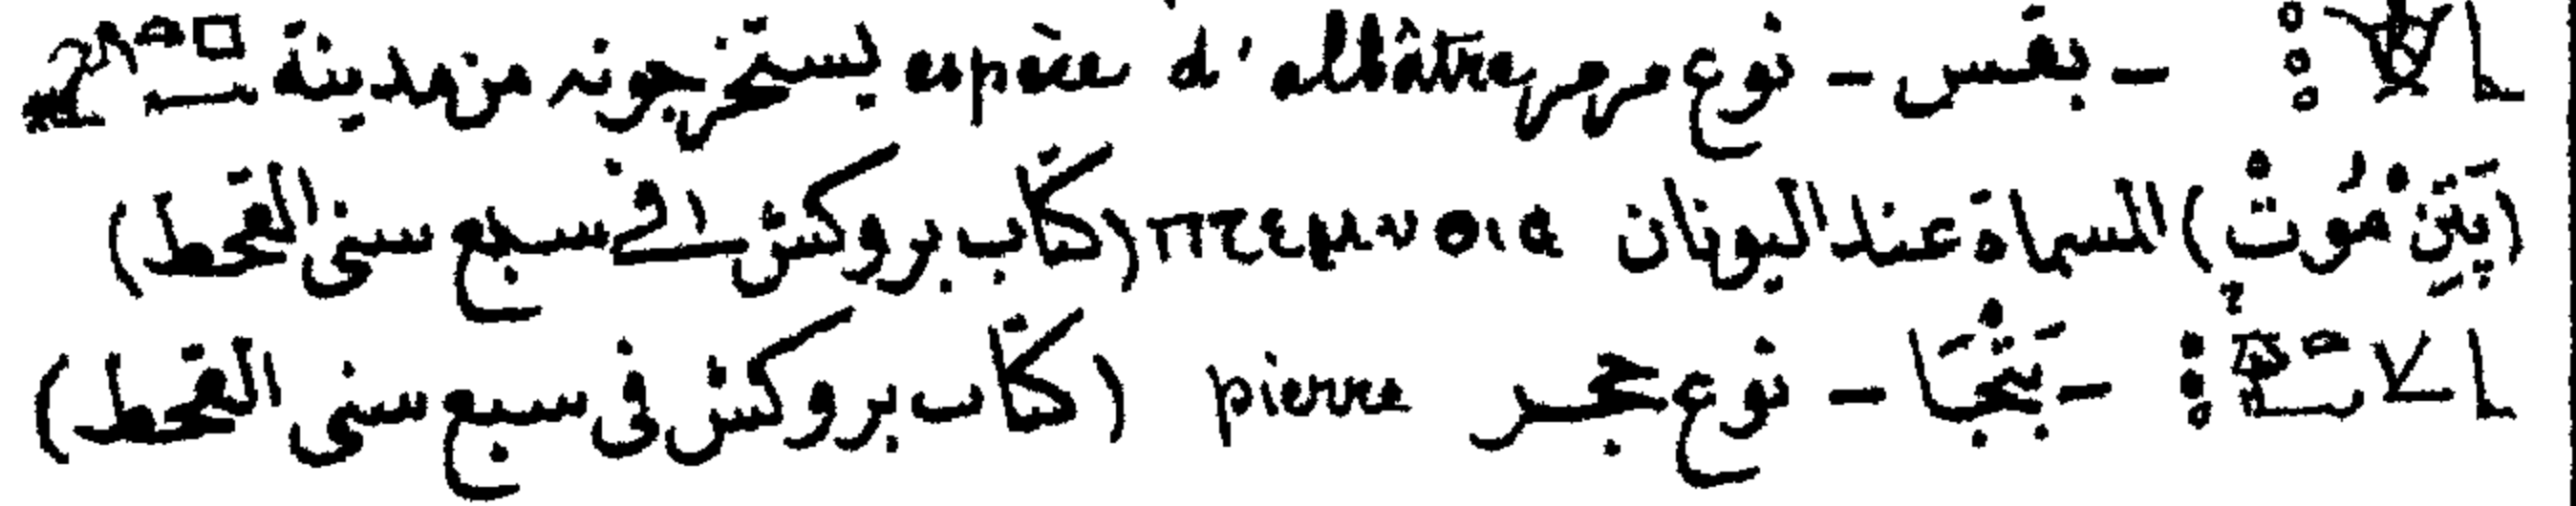 - بقس - نوع مرمر espèce d'albâtre يستخرجونه من مدينة
(پَتِنْ مُوتْ) المسماة عند اليونان πτεμυθια (كتاب بروكش ١ في سبع سنى القحط)
- بَثْجَا - نوع حجر pierre (كتاب بروكش فى سبع سنى القحط)